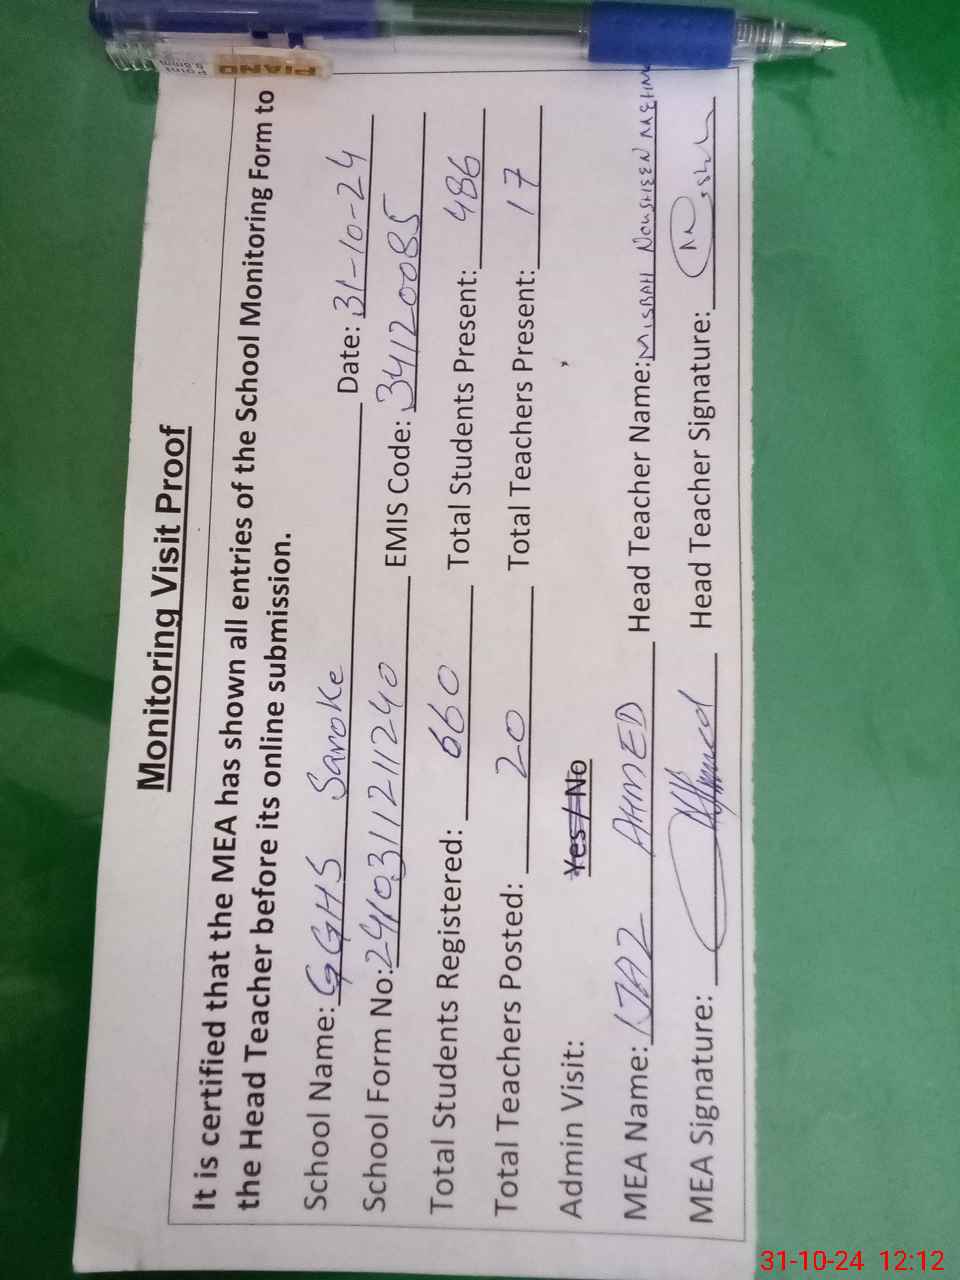 Monitoring Visit Proof
It is certified that the MEA has shown all entries of the School Monitoring Form to
the Head Teacher before its online submission.
School Name: GGHS Saroke Date: 31-10-24
School Form No: 2410311211240 EMIS Code: 34120085
Total Students Registered: 660 Total Students Present: 486
Total Teachers Posted: 20 Total Teachers Present: 17
Admin Visit: Yes / No
MEA Name: IJAZ AHMED Head Teacher Name: MISBAH NOUSHEEN MEHM
MEA Signature: Head Teacher Signature:
PIANO
Point
0.8mm
31-10-24 12:12